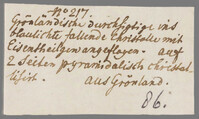 No 217.
Grönländische durchsichtige ins
blaulichte fallende Christalle mit
Eisentheilgen angeflogen. auf
2 Seiten pyramidalisch christal
lisirt. aus Grönland.
86.